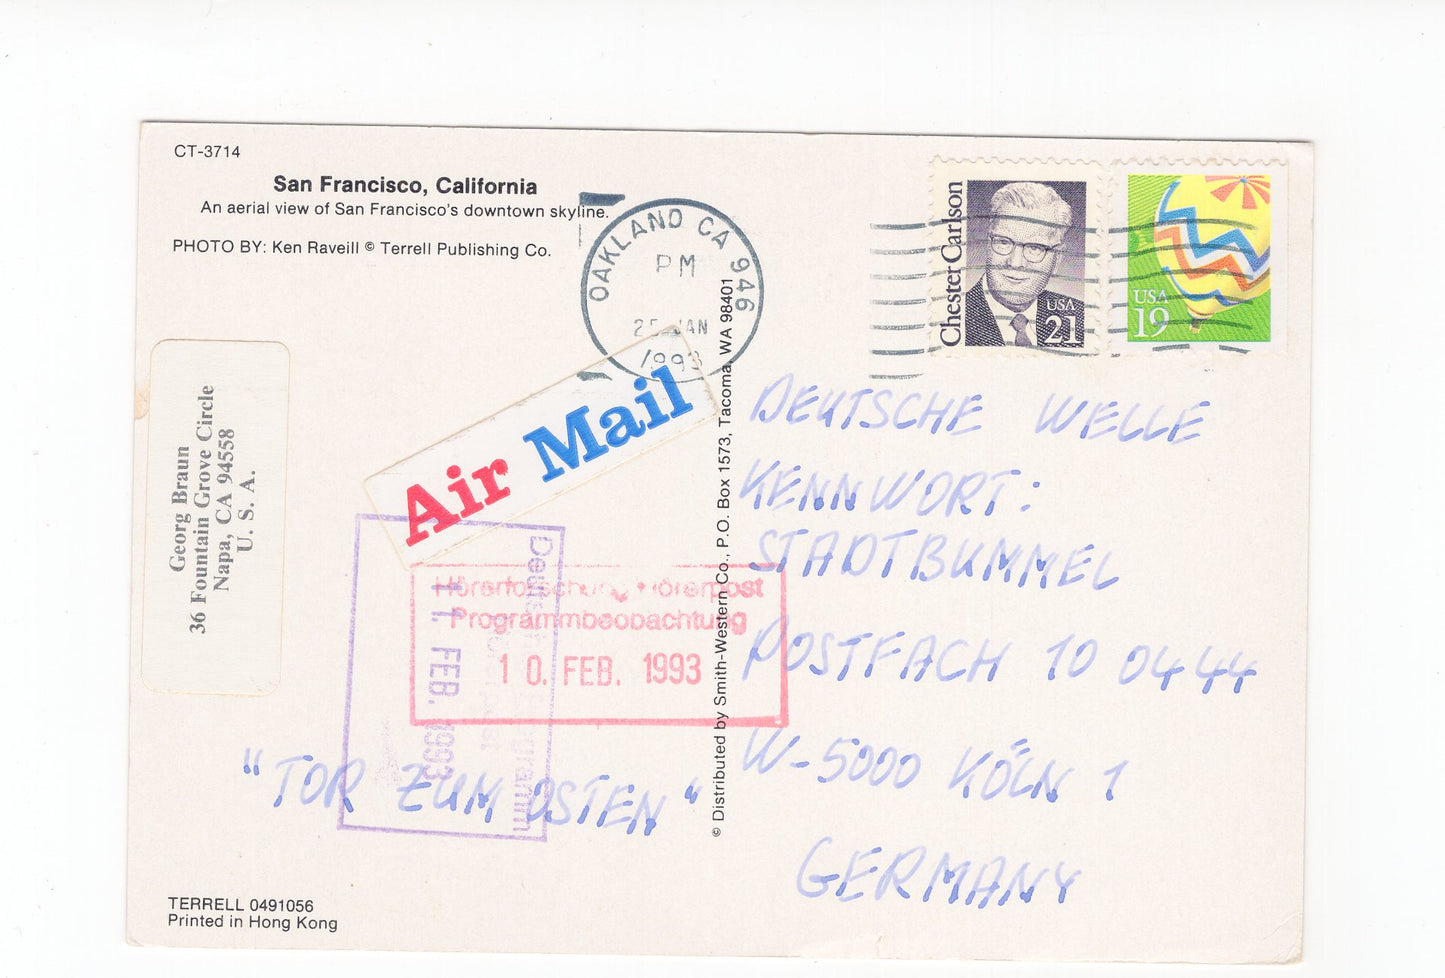 CT-3714
San Francisco, California
An aerial view of San Francisco's downtown skyline.
PHOTO BY: Ken Raveill © Terrell Publishing Co.
OAKLAND CA 946
PM
25 JAN
1993
Chester Carlson
USA
21
USA
19
Georg Braun
36 Fountain Grove Circle
Napa, CA 94558
U. S. A.
Air Mail
Deutsche
Programm
11. FEB. 1993
Programmbeobachtung
10. FEB. 1993
© Distributed by Smith-Western Co., P.O. Box 1573, Tacoma, WA 98401
DEUTSCHE WELLE
KENNWORT:
STADTBUMMEL
POSTFACH 10 04 44
W-5000 KÖLN 1
GERMANY
"TOR ZUM OSTEN"
TERRELL 0491056
Printed in Hong Kong